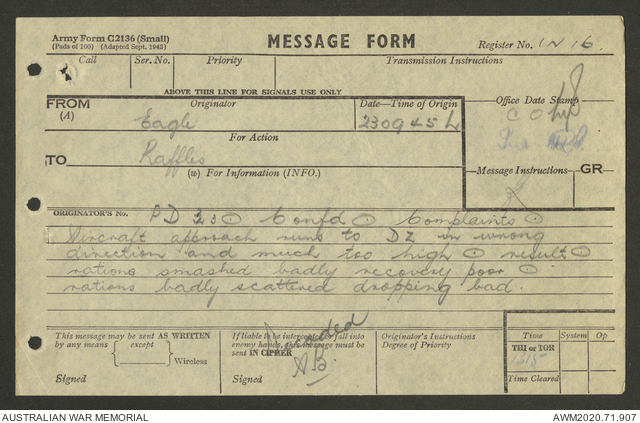 Army Form C2136 (Small)
(Pads of 100) (Adapted Sept. 1943)
MESSAGE FORM
Register No. IN 16
Call Ser. No. Priority Transmission Instructions
ABOVE THIS LINE FOR SIGNALS USE ONLY
FROM Originator Date—Time of Origin Office Date Stamp
(A) Eagle 230945L
For Action
TO Raffles
(w) For Information (INFO.) Message Instructions GR
ORIGINATOR'S No. PD 23 ⊙ Confd ⊙ Complaints ⊙
Aircraft approach runs to DZ in wrong
direction and much too high ⊙ result
rations smashed badly recovery poor ⊙
rations badly scattered dropping bad.
This message may be sent AS WRITTEN
by any means except
Wireless
Signed
If liable to be intercepted or fall into
enemy hands, this message must be
sent IN CIPHER
Signed
Originator's Instructions
Degree of Priority
Time System Op
THI or TOR
1515
Time Cleared
AUSTRALIAN WAR MEMORIAL AWM2020.71.907